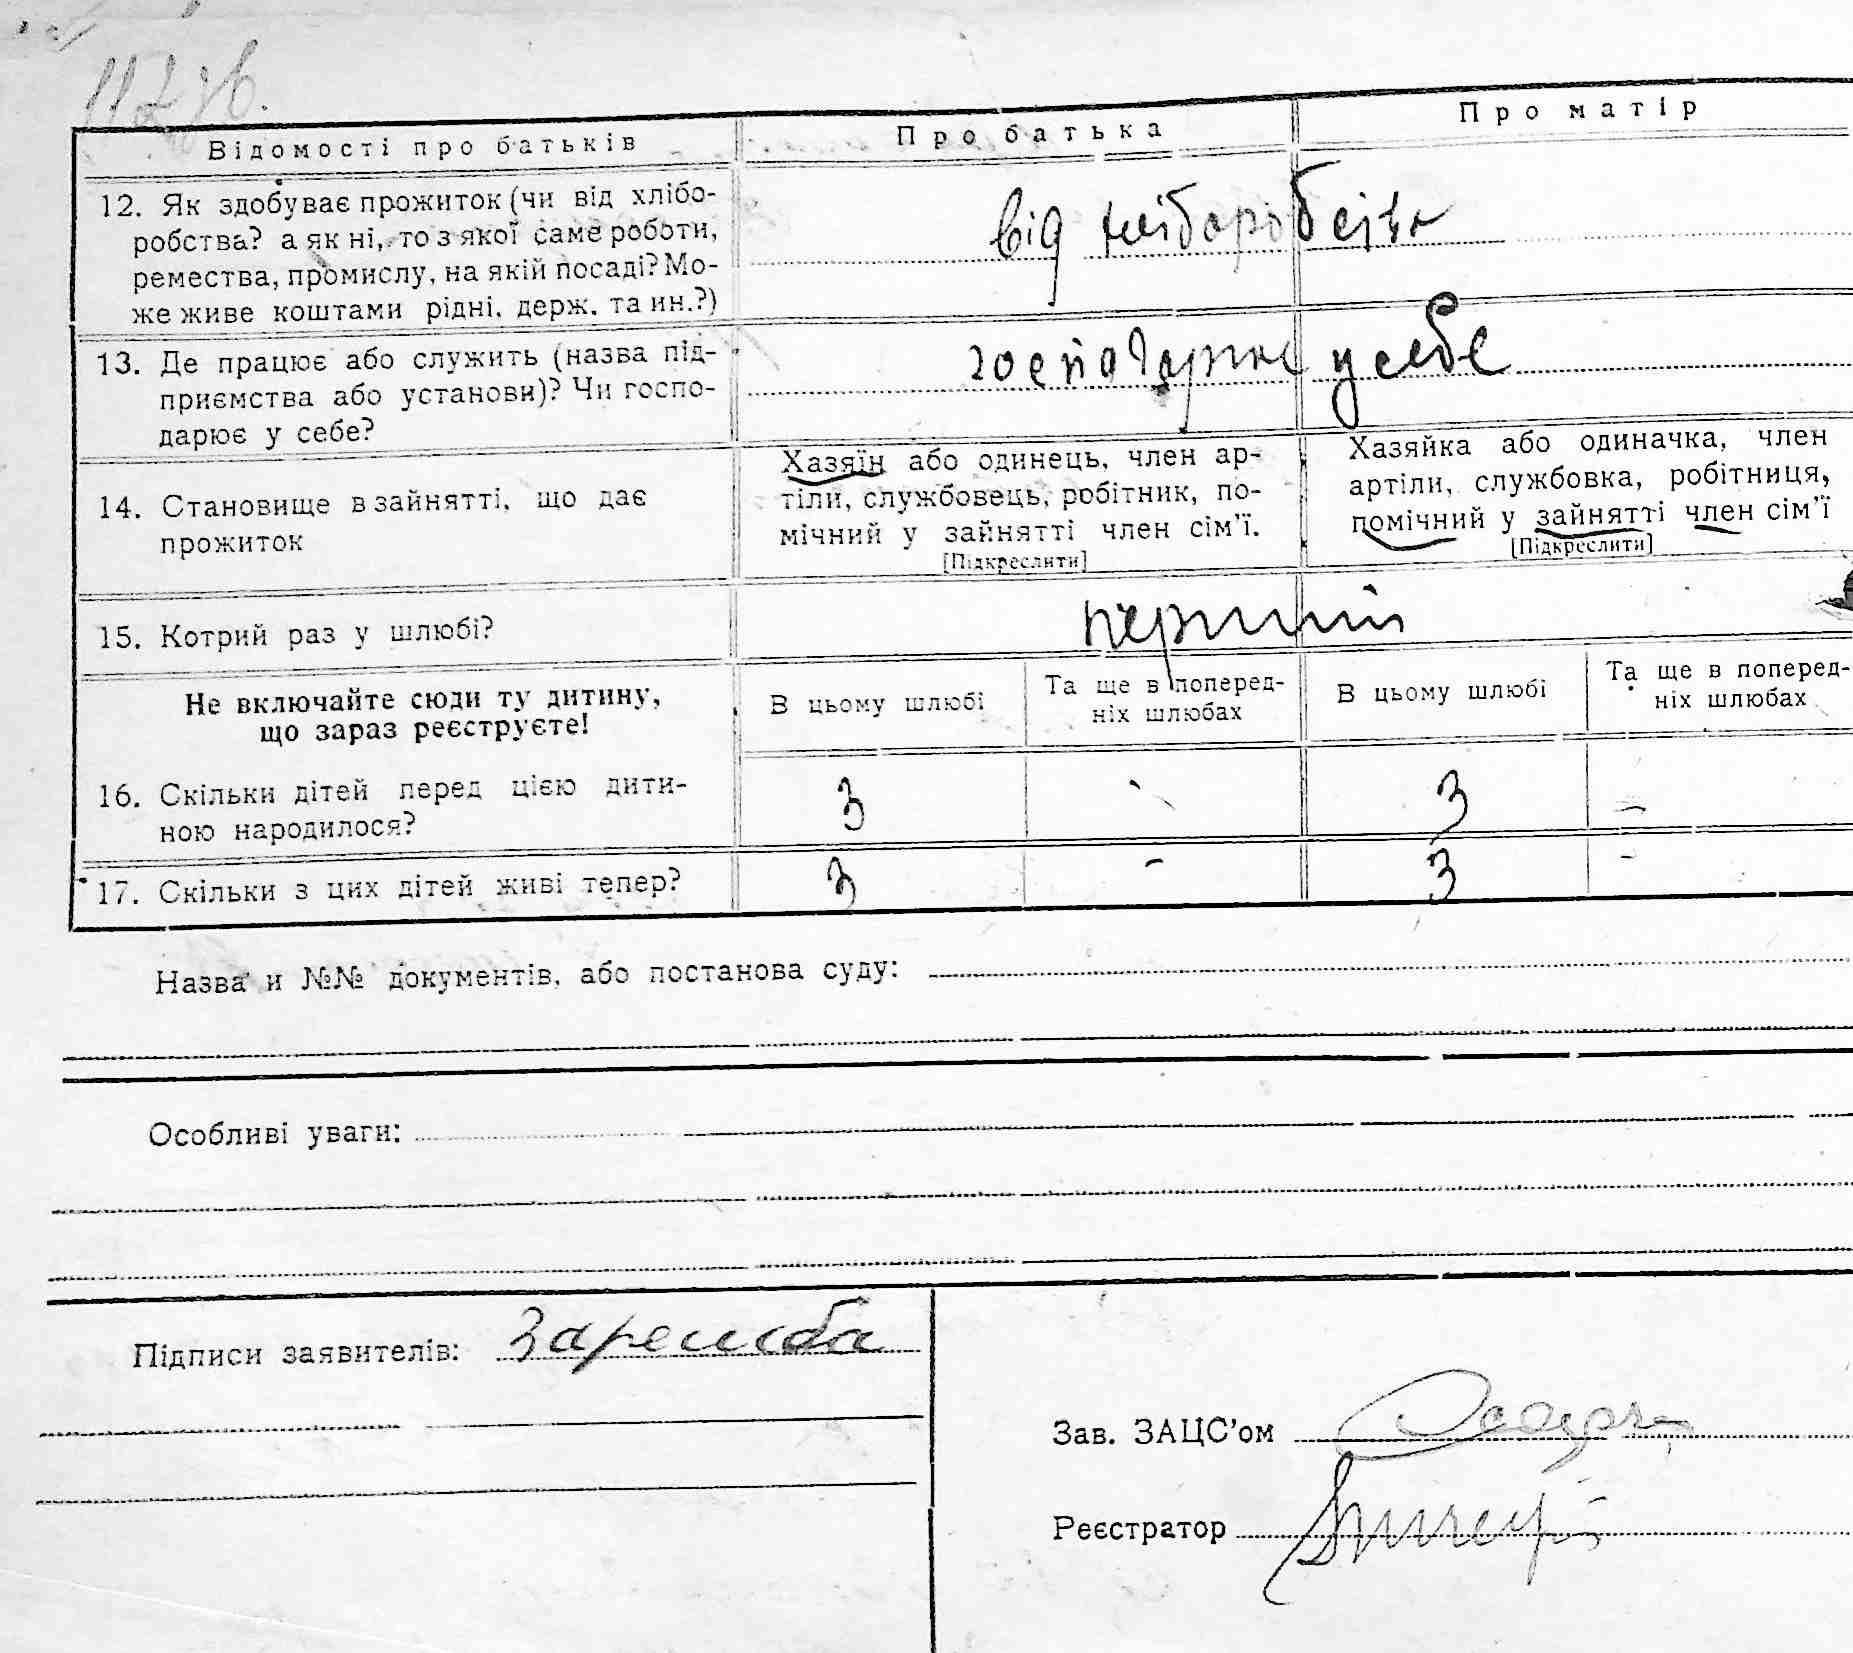 112
Відомості про батьків
Про батька
Про матір
12. Як здобуває прожиток (чи від хлібо-
робства? а як ні, то з якої саме роботи,
ремества, промислу, на якій посаді? Мо-
же живе коштами рідні, держ. та ин.?)
від хліборобства
13. Де працює або служить (назва під-
приємства або установи)? Чи госпо-
дарює у себе?
господарює у себе
14. Становище в зайнятті, що дає
прожиток
Хазяїн або одинець, член ар-
тіли, службовець, робітник, по-
мічний у зайнятті член сім'ї.
[Підкреслити]
Хазяйка або одиначка, член
артіли, службовка, робітниця,
помічний у зайнятті член сім'ї
[Підкреслити]
15. Котрий раз у шлюбі?
перший
Не включайте сюди ту дитину,
що зараз реєструєте!
В цьому шлюбі
Та ще в поперед-
ніх шлюбах
В цьому шлюбі
Та ще в поперед-
ніх шлюбах
16. Скільки дітей перед цією дити-
ною народилося?
3 - 3 -
17. Скільки з цих дітей живі тепер?
3 - 3 -
Назва и №№ документів, або постанова суду:
Особливі уваги:
Підписи заявителів: Заремба
Зав. ЗАЦС'ом
Реєстратор